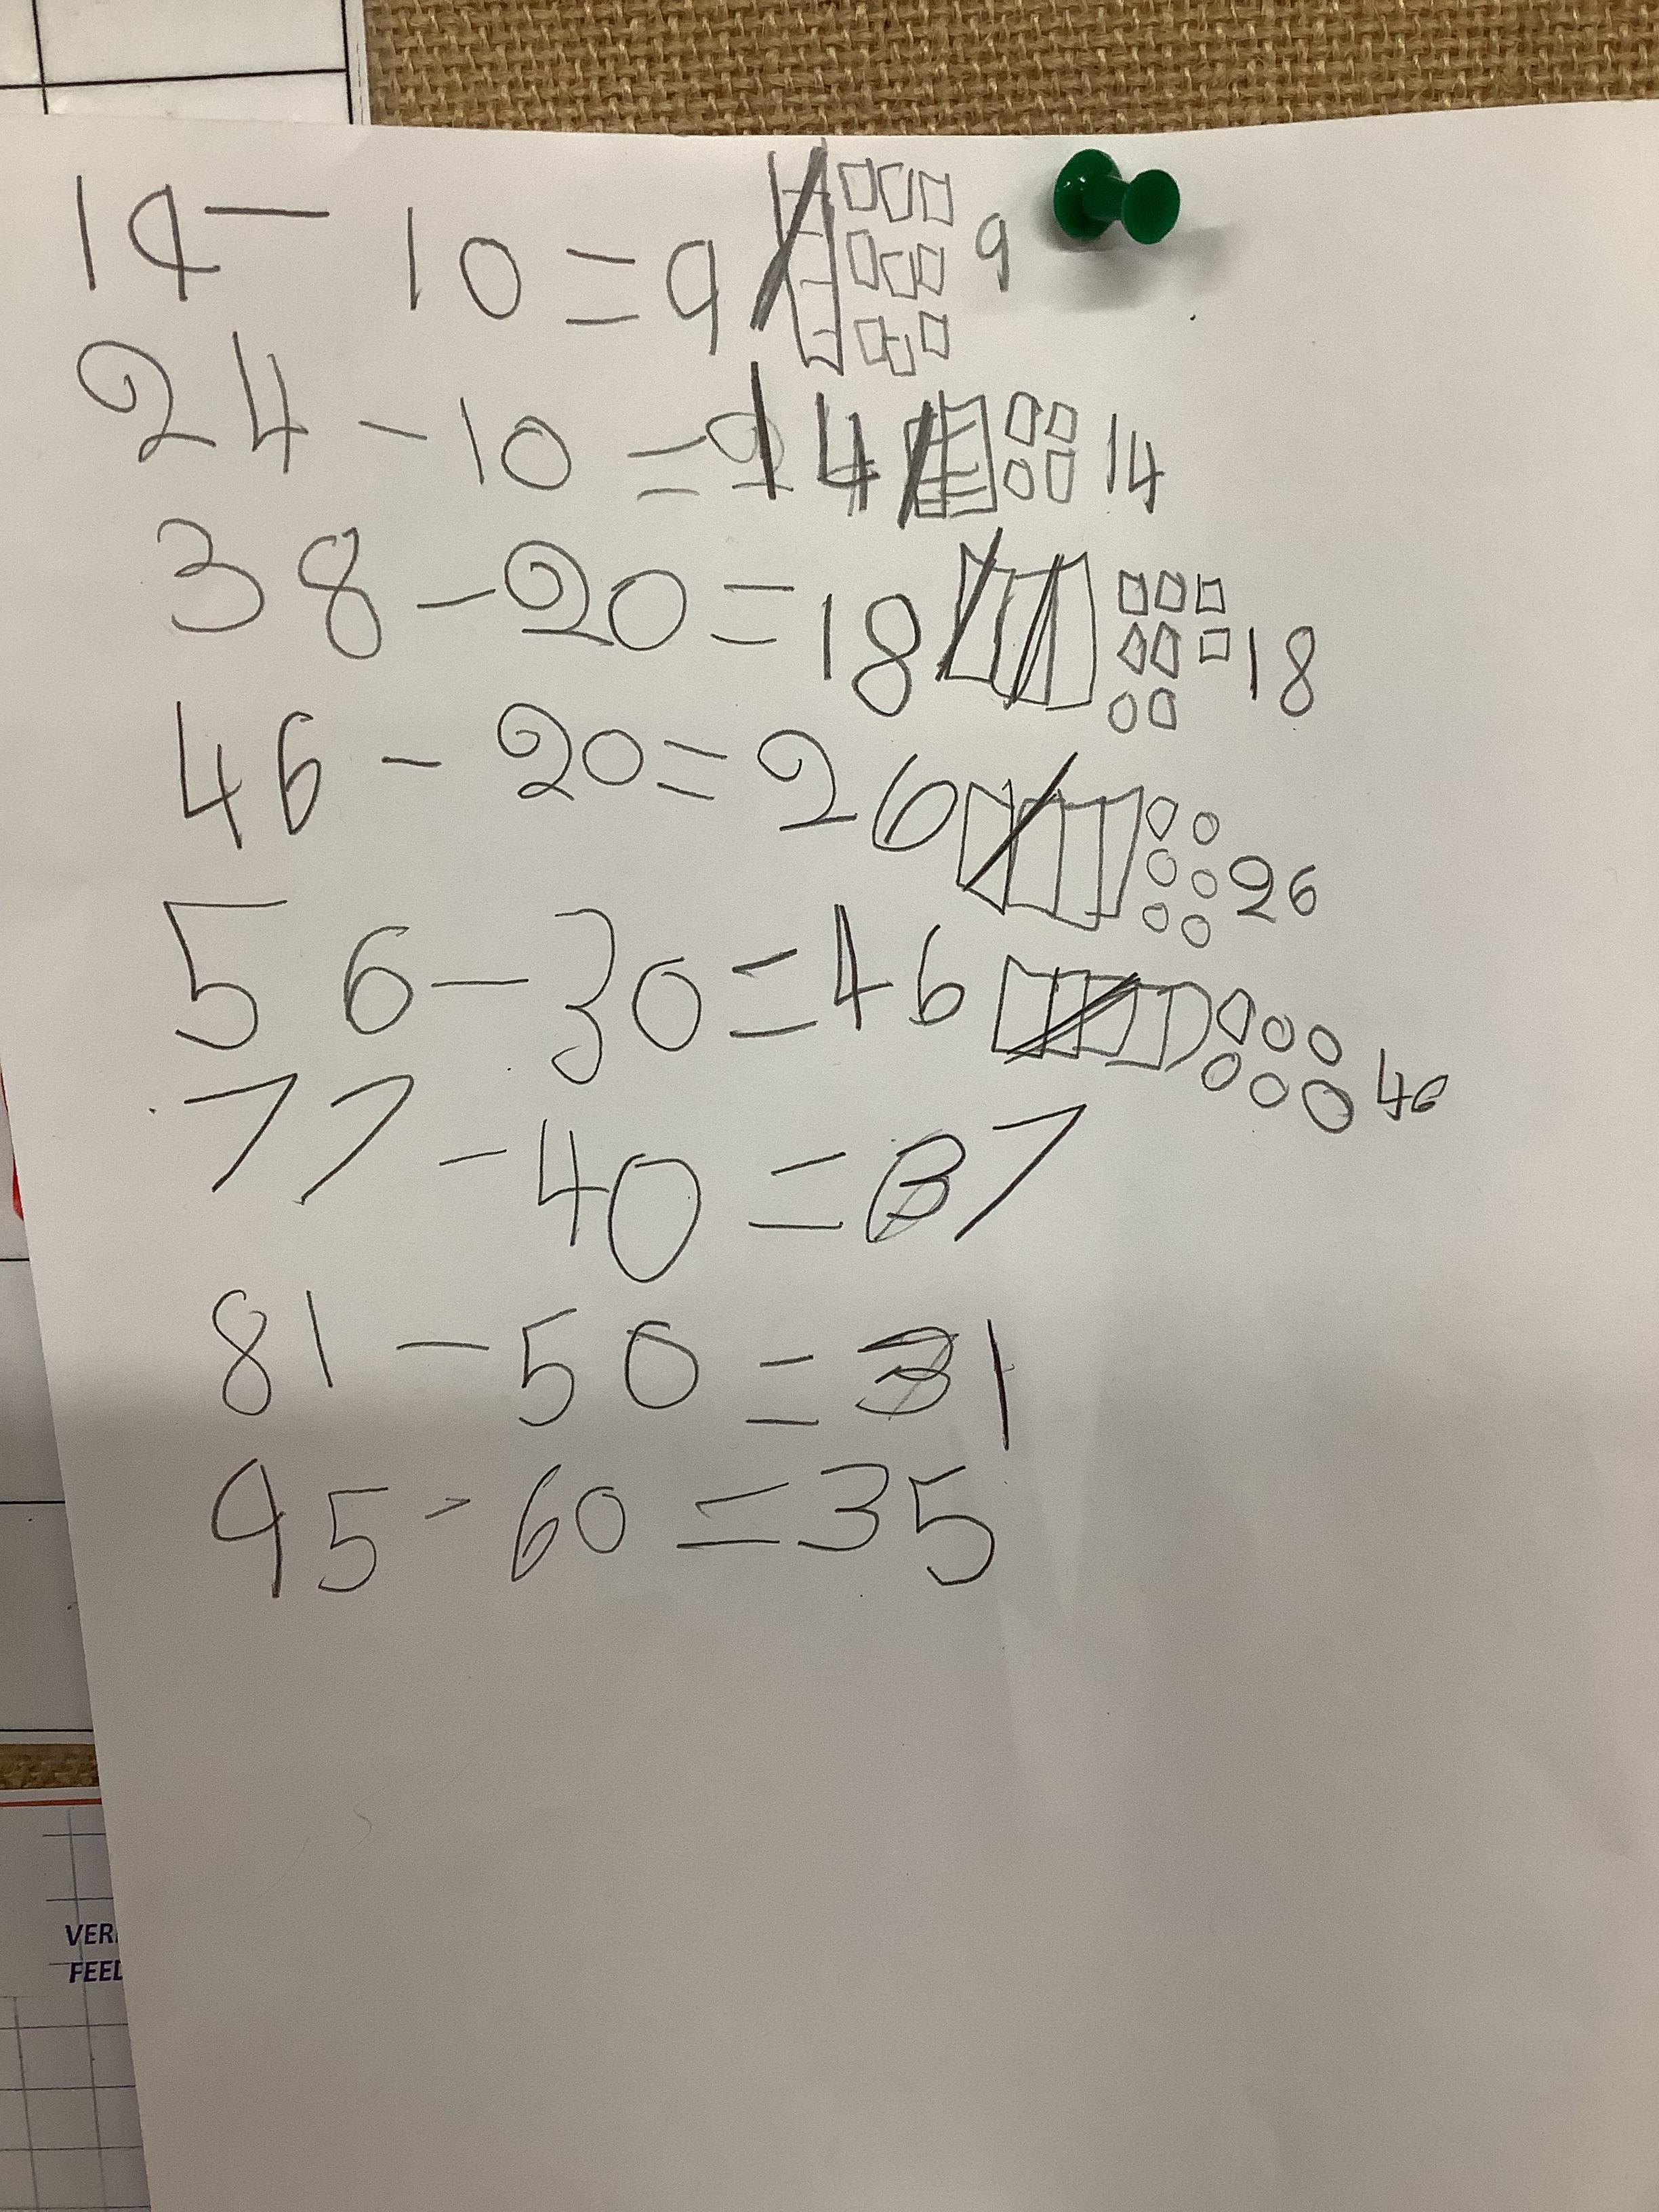 19 - 10 = 9 9
24 - 10 = 14 14
38 - 20 = 18 18
46 - 20 = 26 26
56 - 30 = 46 46
77 - 40 = 37
81 - 50 = 31
95 - 60 = 35